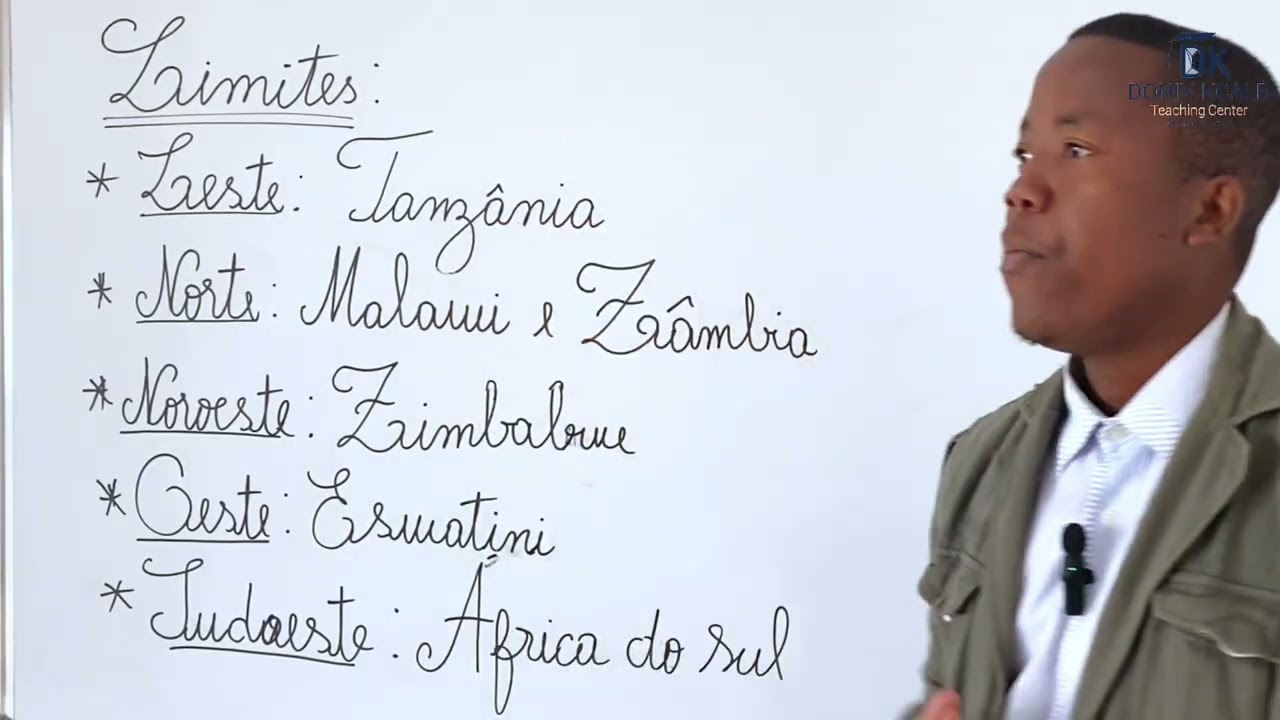 Limites:
* Leste: Tanzânia
* Norte: Malawi e Zâmbia
* Noroeste: Zimbabwe
* Oeste: Eswatini
* Sudoeste: África do sul
DK
Teaching Center